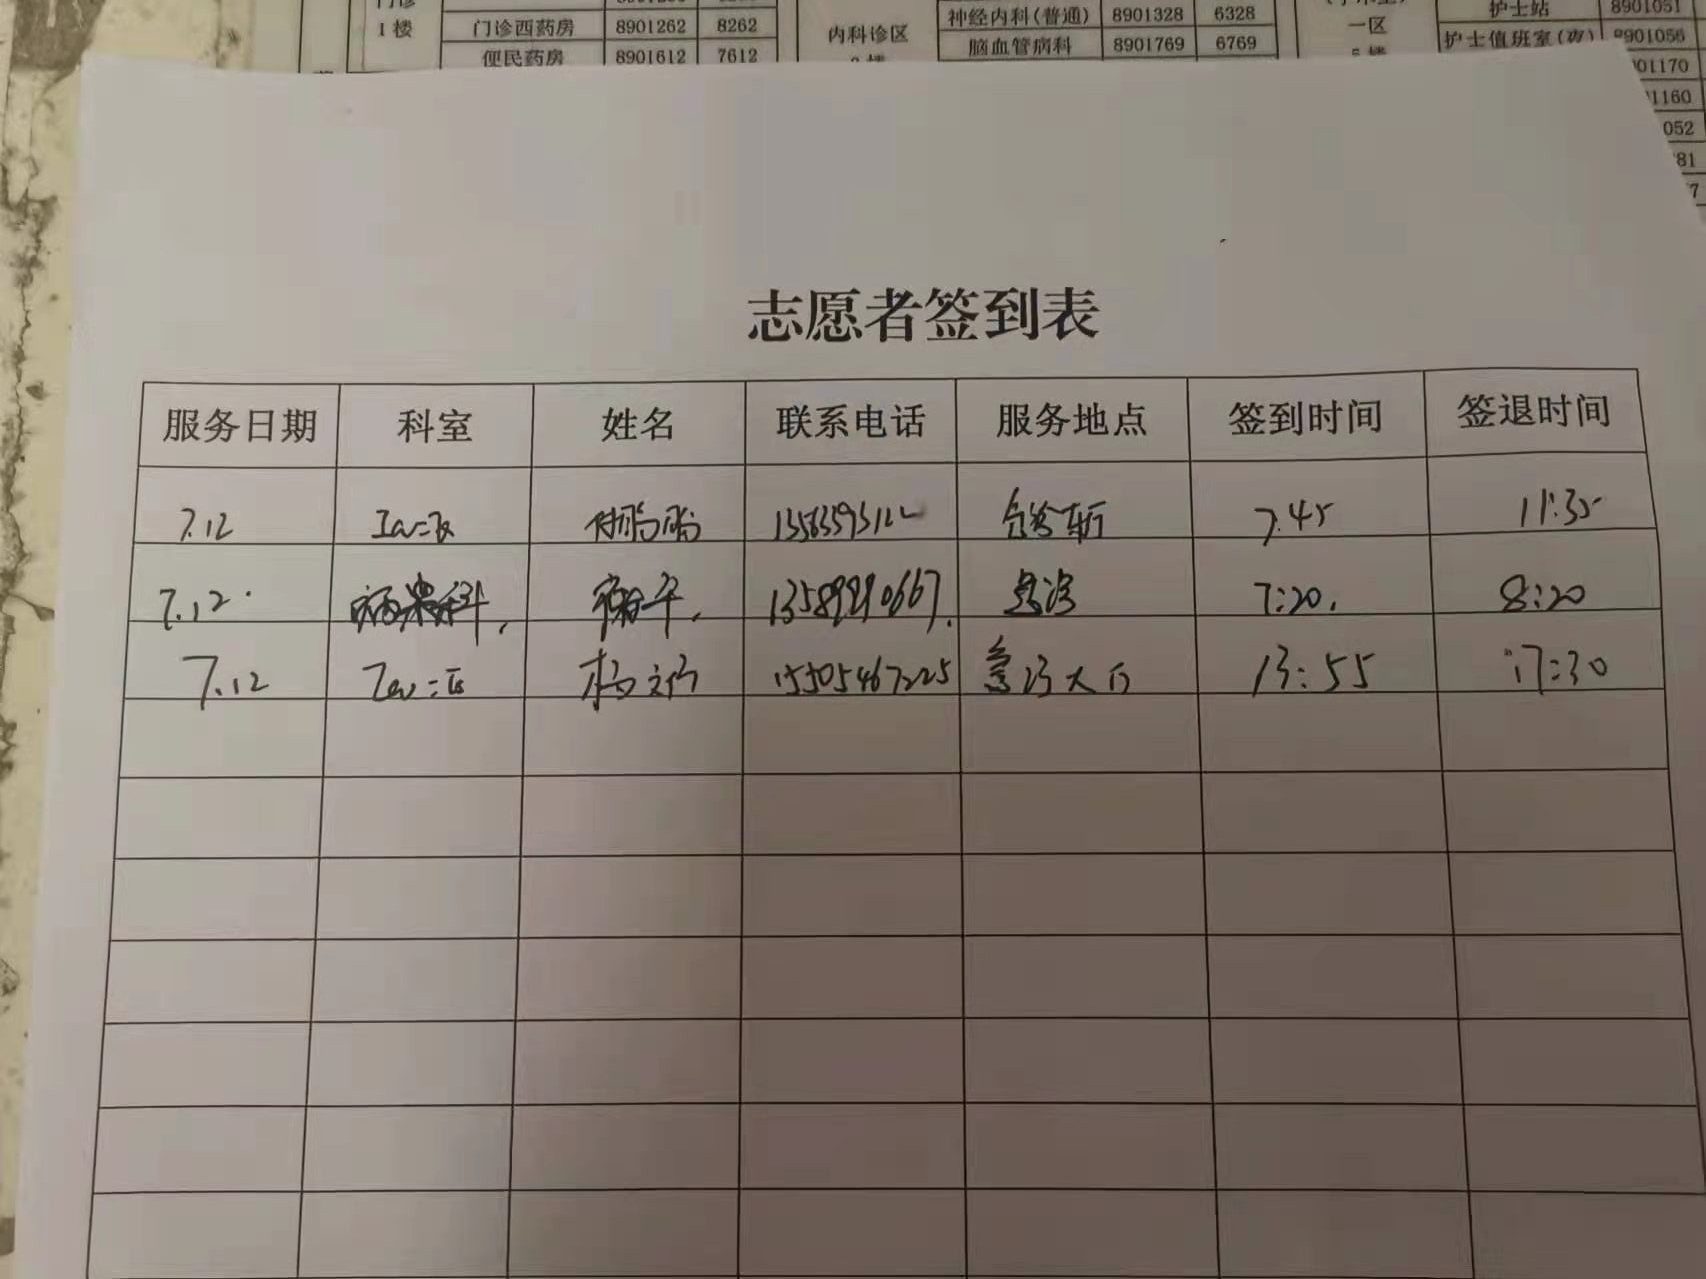 门诊
1楼
门诊西药房 8901262 8262
便民药房 8901612 7612
内科诊区
神经内科(普通) 8901328 6328
脑血管病科 8901769 6769
一区
护士站 8901051
护士值班室(夜) 8901056
01170
1160
052
81
7
志愿者签到表
服务日期 科室 姓名 联系电话 服务地点 签到时间 签退时间
7.12 7.45 11:35
7.12 13589990667 急诊 7:20 8:20
7.12 15505467225 急诊大厅 13:55 17:30